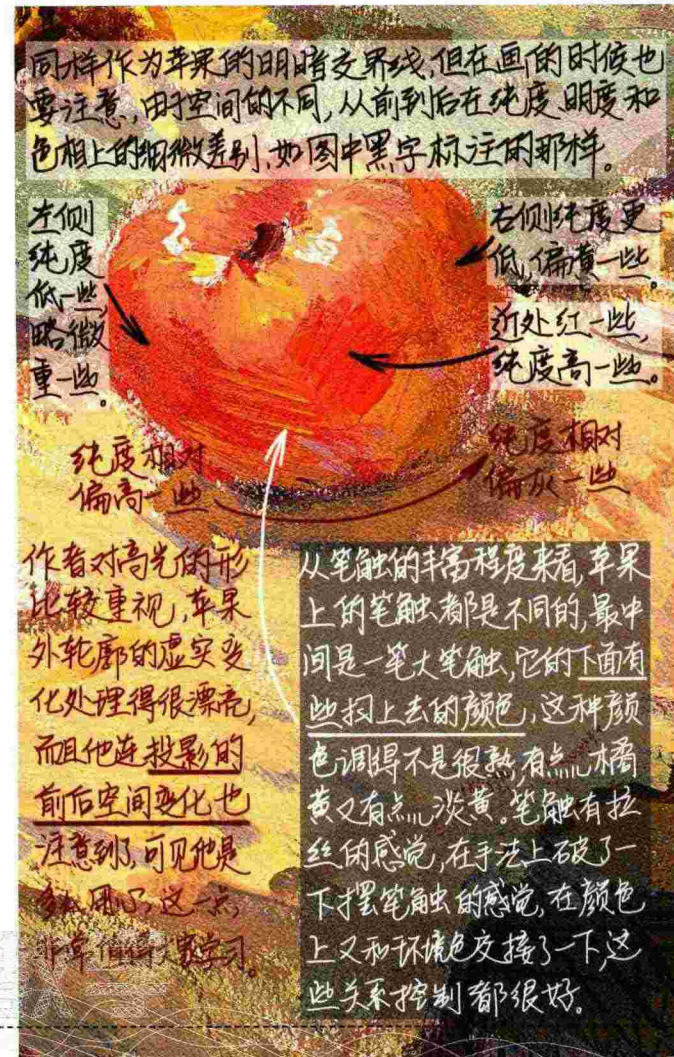 同样作为苹果的明暗交界线,但在画的时候也
要注意,由于空间的不同,从前到后在纯度、明度和
色相上的细微差别,如图中黑字标注的那样。
左侧
纯度
低一些,
略微
重一些。
右侧纯度更
低,偏黄一些。
近处红一些,
纯度高一些。
纯度相对
偏高一些
纯度相对
偏灰一些
作者对高光的形
比较重视,苹果
外轮廓的虚实变
化处理得很漂亮,
而且他连投影的
前后空间变化也
注意到了,可见他是
多么用心了,这一点
非常值得大家学习。
从笔触的丰富程度来看,苹果
上的笔触都是不同的,最中
间是一笔大笔触,它的下面有
些扫上去的颜色,这种颜
色调得不是很熟,有点儿橘
黄又有点儿淡黄。笔触有拉
丝的感觉,在手法上破了一
下摆笔触的感觉,在颜色
上又和环境色交接了一下,这
些关系控制都很好。